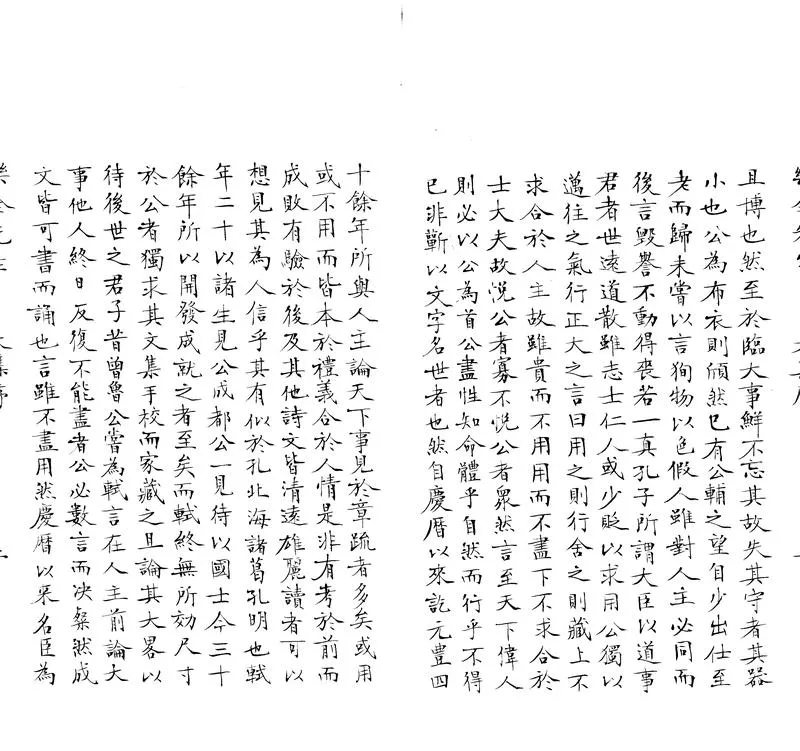 且博也然至於臨大事鮮不忘其故失其守者其器
小也公為布衣則傾然已有公輔之望自少出仕至
老而歸未嘗以言徇物以色假人雖對人主必同而
後言毀譽不動得喪若一真孔子所謂大臣以道事
君者世遠道散雖志士仁人或少貶以求用公獨以
邁往之氣行正大之言曰用之則行舍之則藏上不
求合於人主故雖貴而不用用而不盡下不求合於
士大夫故悅公者寡不悅公者眾然言至天下偉人
則必以公為首公盡性知命體乎自然而行乎不得
已非蘄以文字名世者也然自慶曆以來訖元豊四
十餘年所與人主論天下事見於章疏者多矣或用
或不用而皆本於禮義合於人情是非有考於前而
成敗有驗於後及其他詩文皆清遠雄麗讀者可以
想見其為人信乎其有似於孔北海諸葛孔明也軾
年二十以諸生見公成都公一見待以國士今三十
餘年所以開發成就之者至矣而軾終無所効尺寸
於公者獨求其文集手校而家藏之且論其大畧以
待後世之君子昔曾魯公嘗為軾言在人主前論大
事他人終日反復不能盡者公必數言而决粲然成
文皆可書而誦也言雖不盡用然慶曆以來名臣為